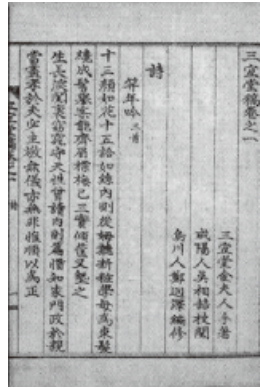 三宜堂稿卷之一
三宜堂金夫人手著
咸陽人吳相喆校閱
烏川人鄭迥澤編修
詩
笄年吟 三首
十三顏如花十五語如絲內則從姆聽新粧學母為束髮
纔成髻擧案能齊眉標梅已三實傾筐又塈之
生長深閨裏窈窕守天性曾讀內則篇慣知家門政於親
當盡孝於夫必主敬無儀亦無非惟順以為正